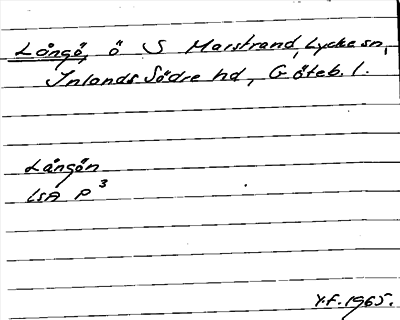 Långö, ö S Marstrand, Lycke sn,
Inlands Södre hd, Göteb. l.
Långön
LSA P³
Y.F. 1965.